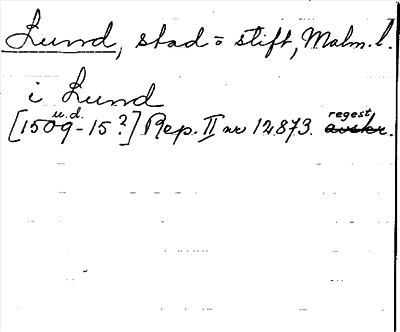 Lund, stad = stift, Malm. l.
i Lund
u.d. regest
[1509-15?] Rep. II nr 12873. avskr.